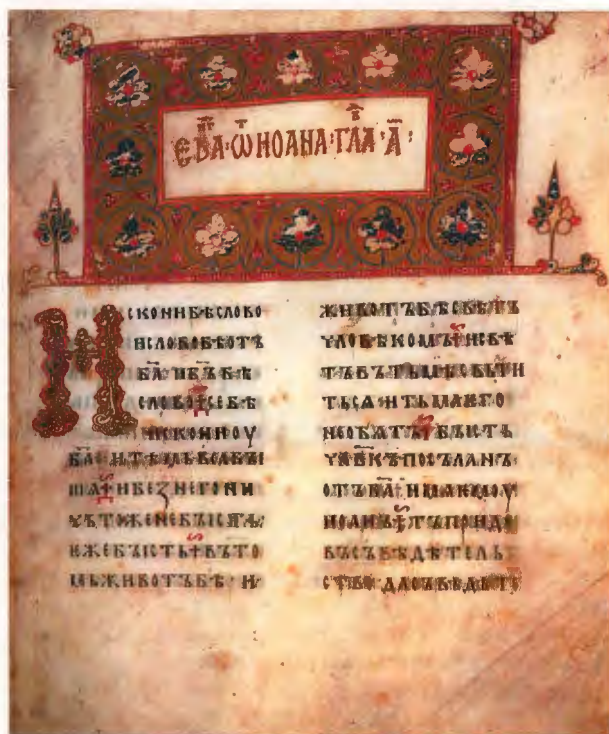 ЄВА·Ѿ ИОАНА·ГЛА·А҃·
ИСКОНИБѢСЛОВО
ИСЛОВОБѢОТЪ
БА҃·ИБЪ҃БѢ
СЛОВО·СЕБѢ
ИСКОНИОУ
БА҃·ИТѢМЬВСАБЪІ
ШѦ·ИБЕЗНЕГОНИ
ЧЬТОЖЕНЕБЪІСТЬ·
ИЖЕБЪІСТЬ·ВЪТО
МЬЖИВОТЪБѢ·И
ЖИВОТЪБѢСВѢТЪ
ЧЛОВѢКОМЪ·ИСВѢ
ТЪВЪТЬМѢСВЬТИ
ТЬСѦ·ИТЬМАѤГО
НЕОБѦТЪ·БЪІСТЬ
ЧЛВ҃КЪПОСЪЛАНЪ
ОТЪБА҃·ИМѦѤМОУ
ИОАНЪ·ТЪПРИДЕ
ВЪСЪВѢДѢТЕЛЬ
СТВО·ДАСЪВѢДѢТЕ